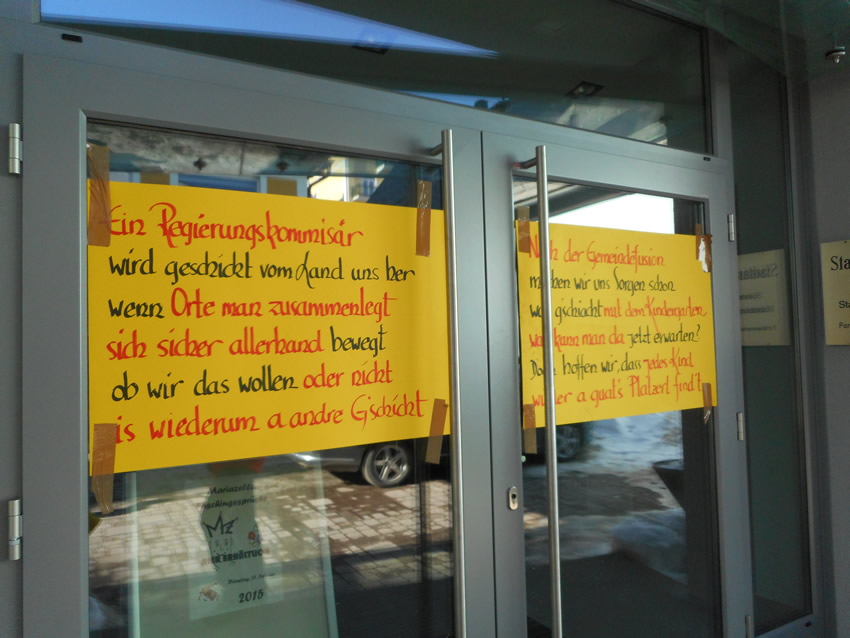 Ein Regierungskommisär
wird geschickt vom Land uns her
wenn Orte man zusammenlegt
sich sicher allerhand bewegt
ob wir das wollen oder nicht
is wiederum a andre G'schicht
Nach der Gemeindefusion
machen wir uns Sorgen schon
was gschiacht mit dem Kindergarten
was kann man da jetzt erwarten?
Doch hoffen wir, dass jedes Kind
wieder a guat's Platzerl find't
Mariazeller
Faschingssprüche
MZ
2015
Sta